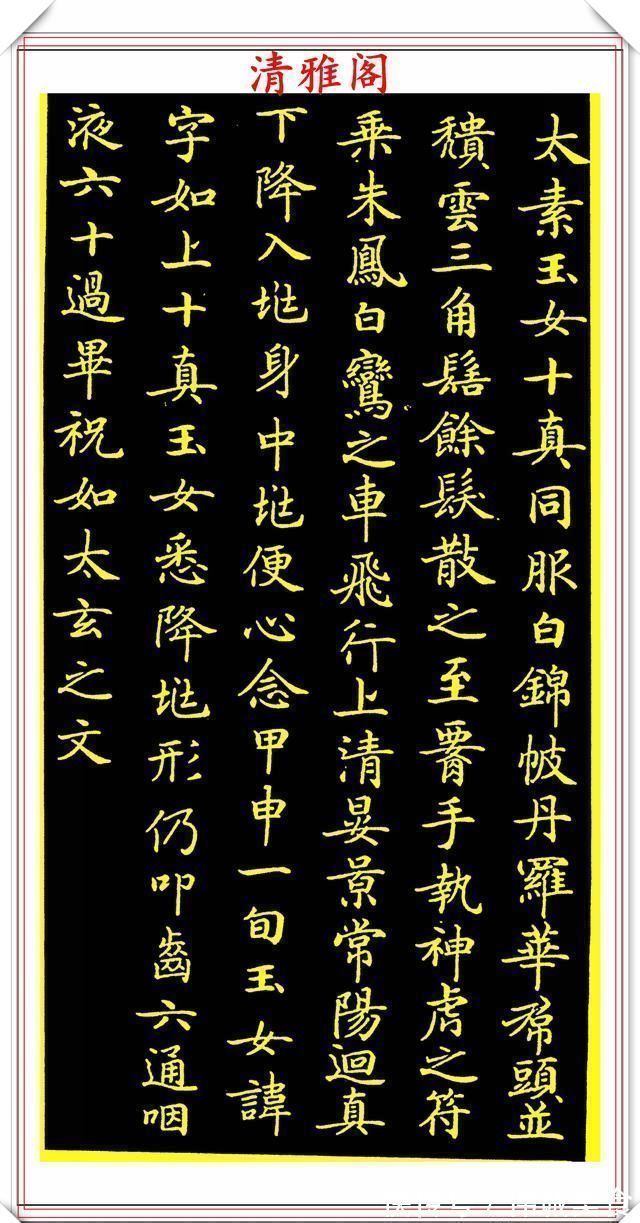 清雅阁
太素玉女十真同服白錦帔丹羅華帬頭並
穨雲三角髻餘髮散之至署手執神虎之符
乗朱鳳白鸞之車飛行上清晏景常陽迴真
下降入兆身中兆便心念甲申一旬玉女諱
字如上十真玉女悉降兆形仍叩齒六通咽
液六十過畢祝如太玄之文